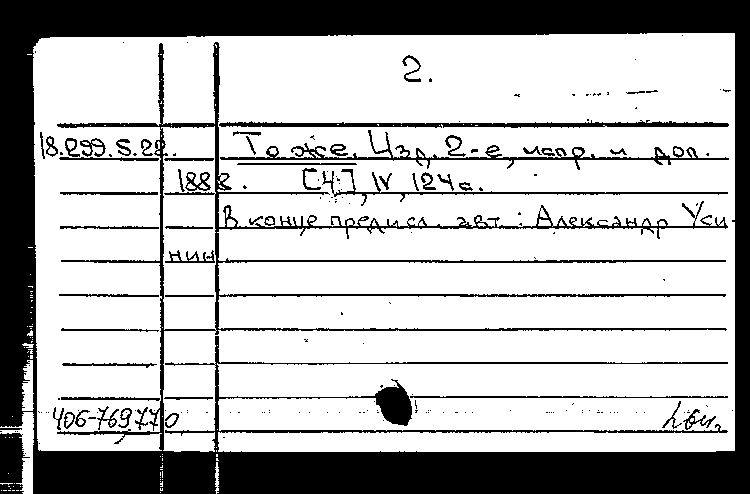 2.
18.299.5.22. То же. Изд. 2-е, испр. и доп.
1888. [4], IV, 124 с.
В конце предисл. авт.: Александр Уси-
нин.
406-769,770